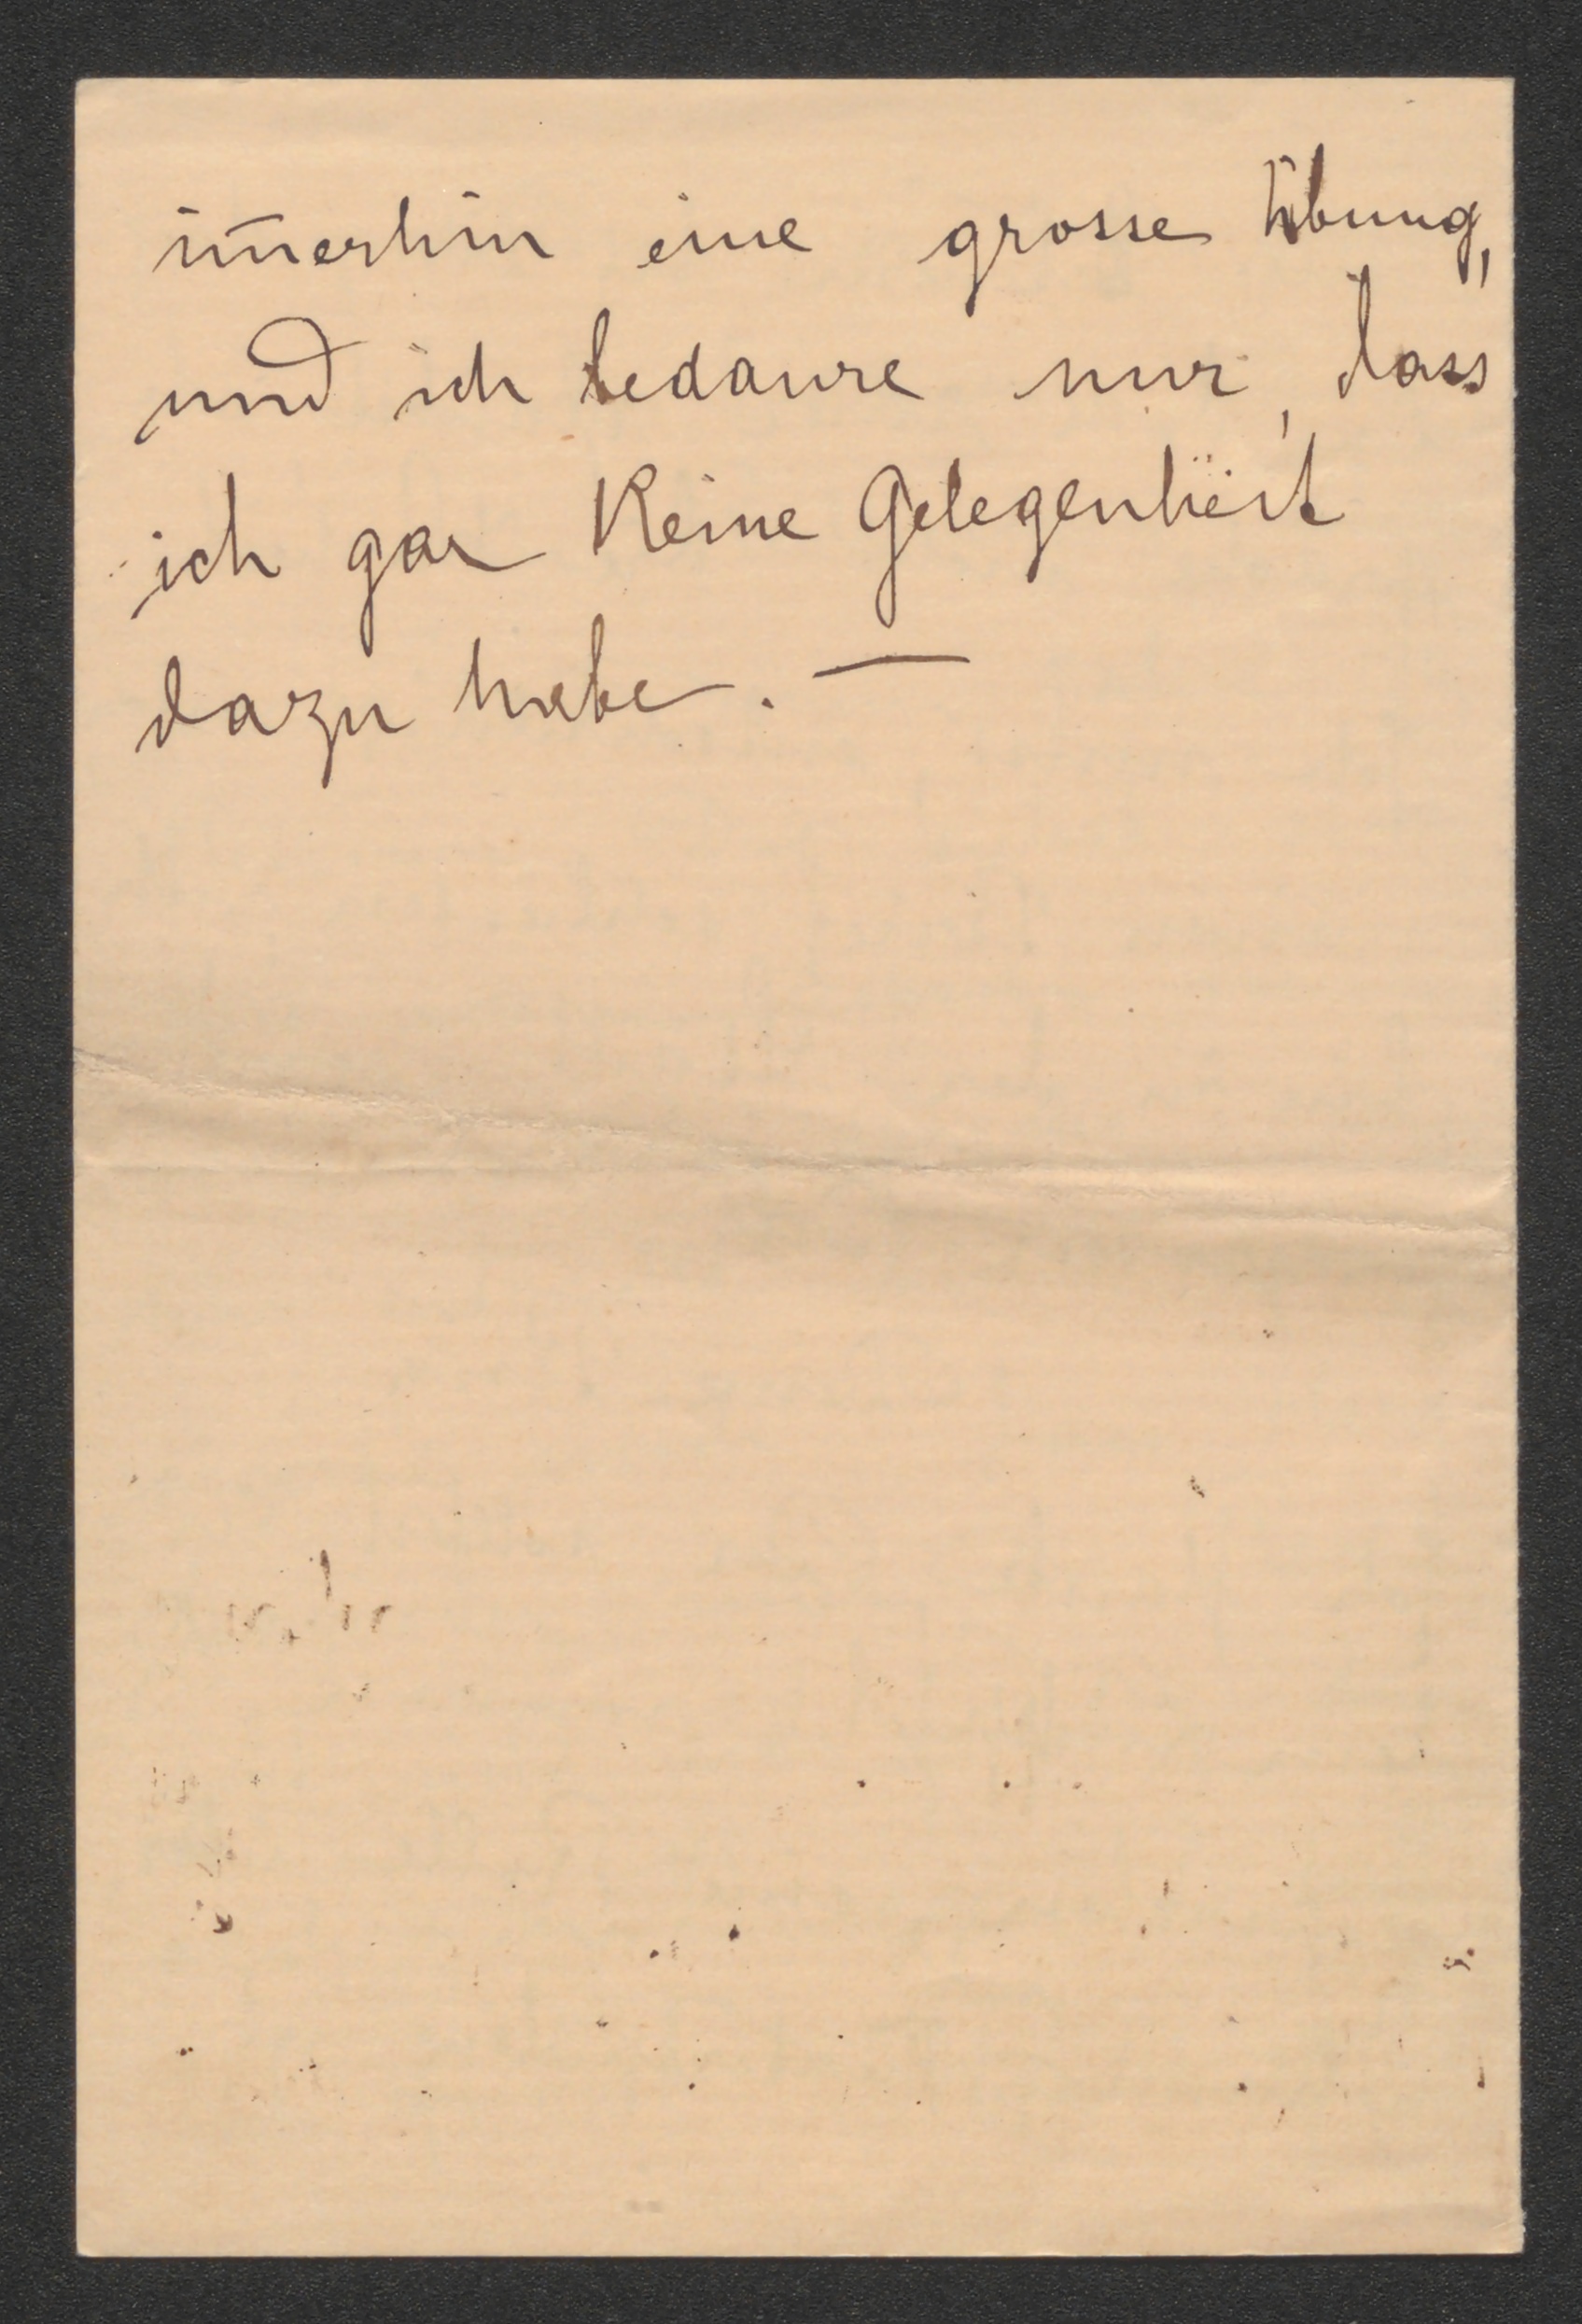 im̄erhin eine grosse Übung,
und ich bedaure nur, dass
ich gar keine Gelegenheit
dazu habe. —